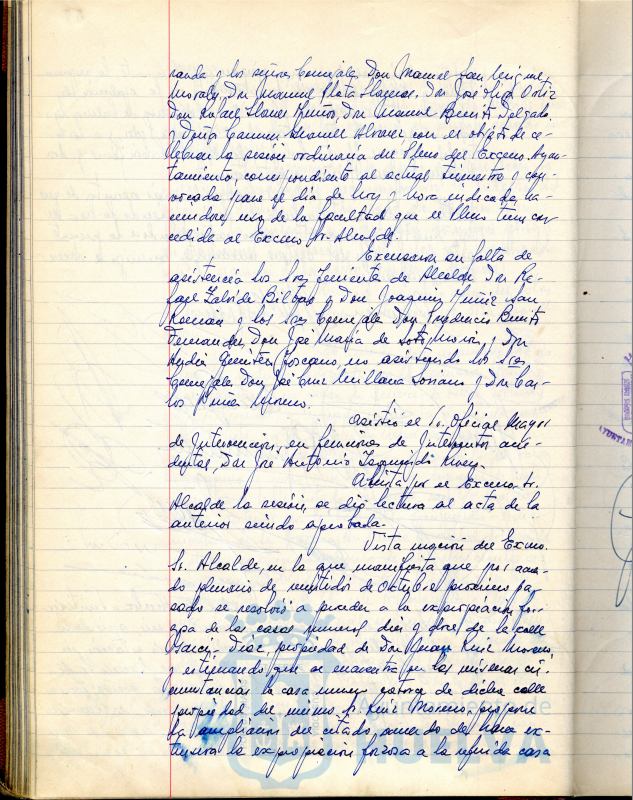 randa y los señores Concejales Don Manuel San Miguel
Morales, Don Manuel Plata Llagunas, Don José Ortiz
Don Rafael Llanes Muñoz, Don Manuel Benito Delgado
y Doña Carmen Alvarez, con el objeto de ce-
lebrar la sesión ordinaria del Pleno del Excmo. Ayun-
tamiento, correspondiente al actual trimestre y con-
vocada para el día de hoy y hora indicada, ha-
ciendose uso de la facultad que el Pleno tiene con
cedida al Excmo. Sr. Alcalde.
Excusaron su falta de
asistencia los Sres Teniente de Alcalde Don Ra-
fael de Bilbao y Don Joaquin Muñiz San
Román y los Sres Concejales Don Prudencio Benito
Fernandez, Don José María de Soto y Don
Toscano, no asistiendo los Sres
Concejales Don José Luis Millana Soriano y Don Car-
los Moreno.
Asistió el Sr. Oficial Mayor
de Intervención, en funciones de Interventor acci-
dental, Don José Antonio
Abierta por el Excmo. Sr.
Alcalde la sesión, se dio lectura al acta de la
anterior siendo aprobada.
Vista moción del Excmo.
Sr. Alcalde, en la que manifiesta que por acuer-
do plenario de veintidos de Octubre próximo pa-
sado se resolvió a proceder a la expropiación for-
zosa de las casas numeros diez y doce de la calle
Garci-Diaz, propiedad de Don Ruiz Moreno,
y estimando que se encuentra en las mismas cir-
cunstancias la casa numero catorce de dicha calle
propiedad del mismo Sr. Ruiz Moreno, propone
la ampliación del citado acuerdo de hacer ex-
tensiva la expropiación forzosa a la referida casa
Ayuntamiento de
HUELVA